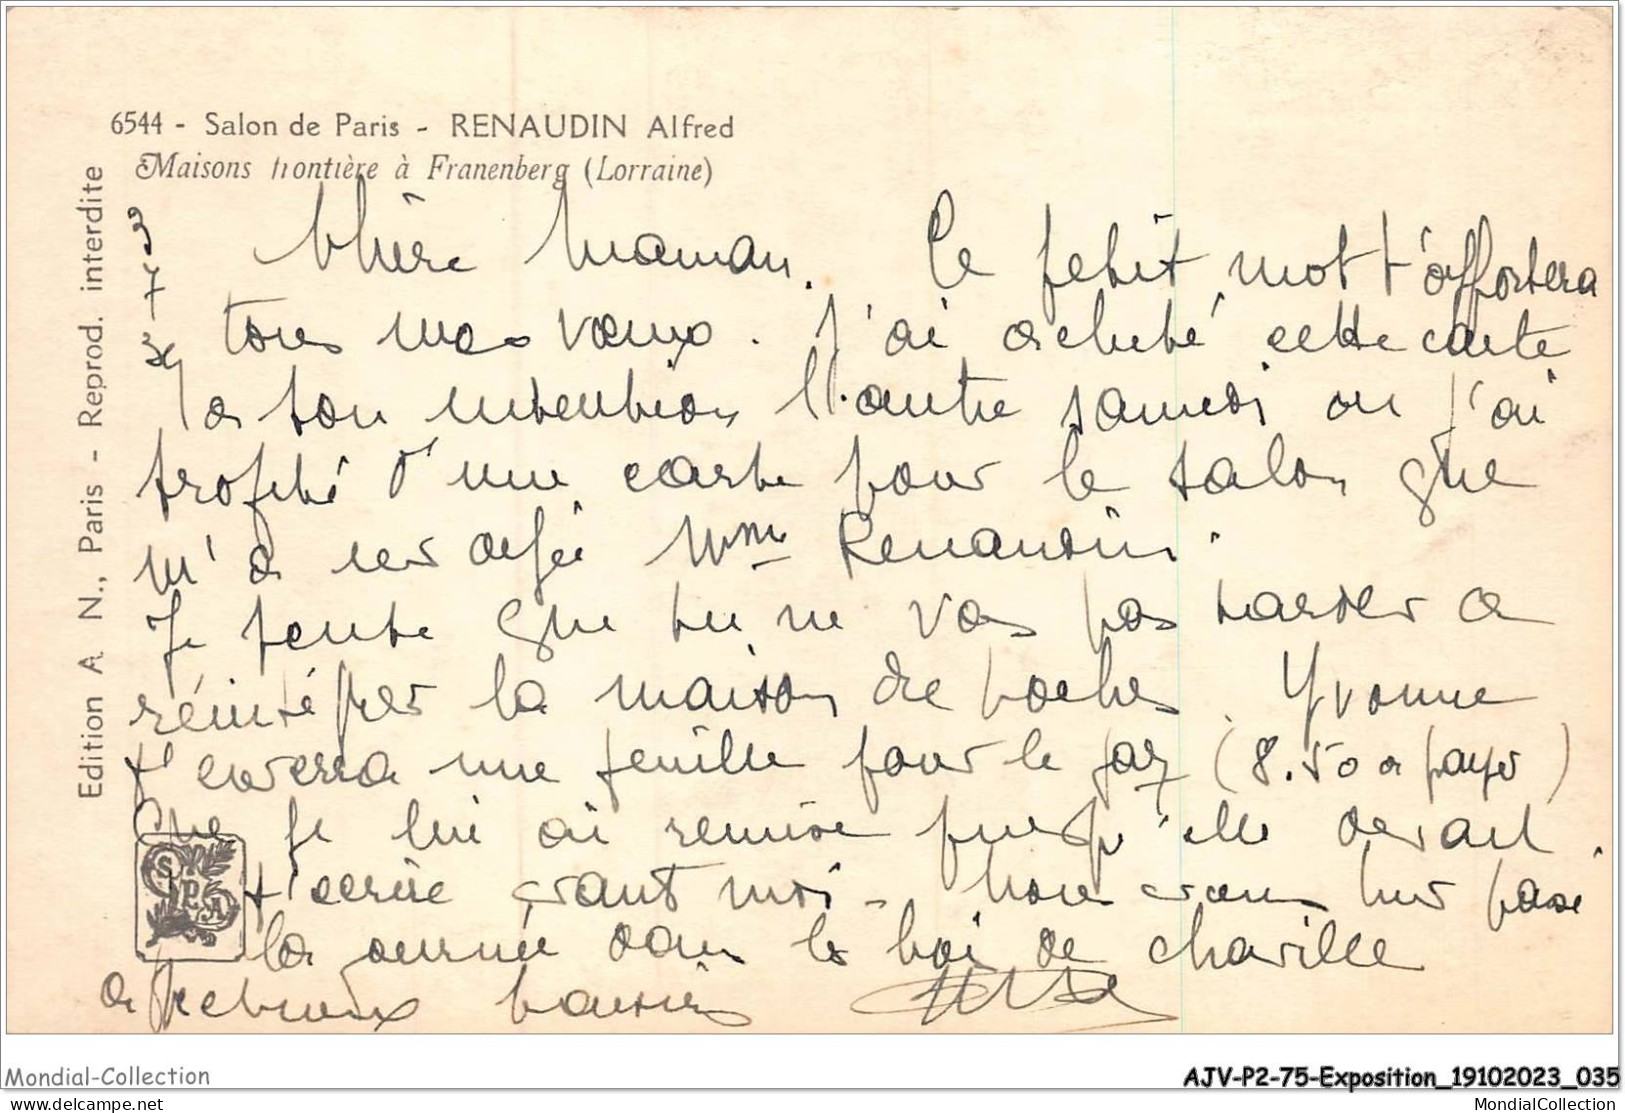 6544 - Salon de Paris - RENAUDIN Alfred
Maisons frontière à Franenberg (Lorraine)
Edition A N., Paris - Reprod. interdite
3
7
39
Chère Maman. Ce petit mot t'apportera
tous mes vœux. J'ai acheté cette carte
a ton intention l'autre samedi ou j'ai
profité d'une carte pour le salon que
m'a Mme Renaudin.
Je pense que tu ne vas pas tarder a
réintégrer la maison de Yvonne
t'enverra une feuille pour le gaz (8.50 a payer)
Que je lui ai remise puisqu'elle devait
t'écrire avant moi - Nous avons hier passé
la journée dans le bois de chaville
affectueux baisers
SPA
Mondial-Collection
AJV-P2-75-Exposition_19102023_035
delcampe.net
MondialCollection